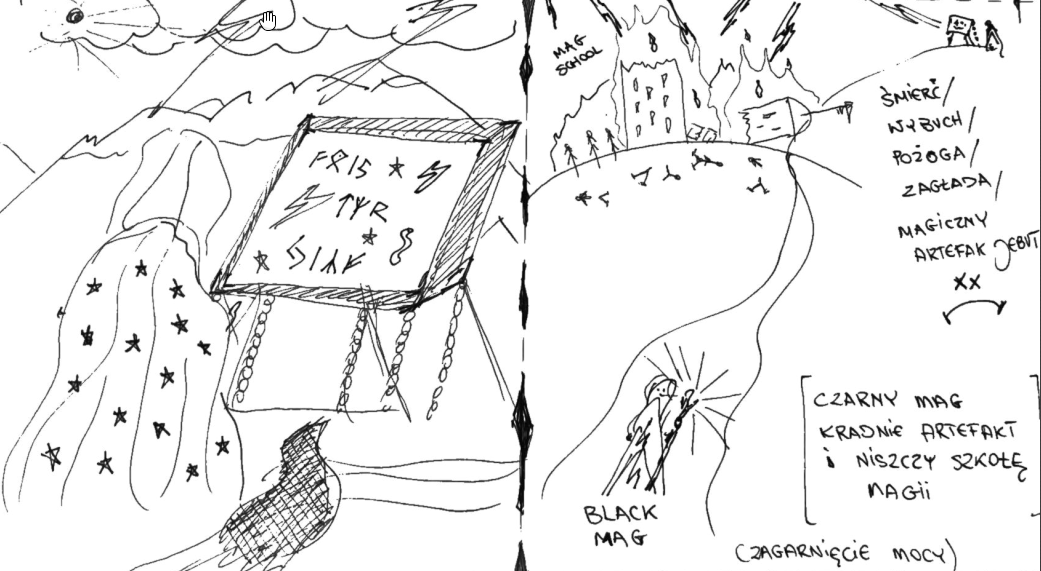 MAG
SCHOOL
ŚMIERĆ/
WYBUCH/
POŻOGA/
ZAGŁADA/
MAGICZNY
ARTEFAK JEBUT
XX
CZARNY MAG
KRADNIE ARTEFAKT
i NISZCZY SZKOŁĘ
MAGII
BLACK
MAG
(ZAGARNIĘCIE MOCY)